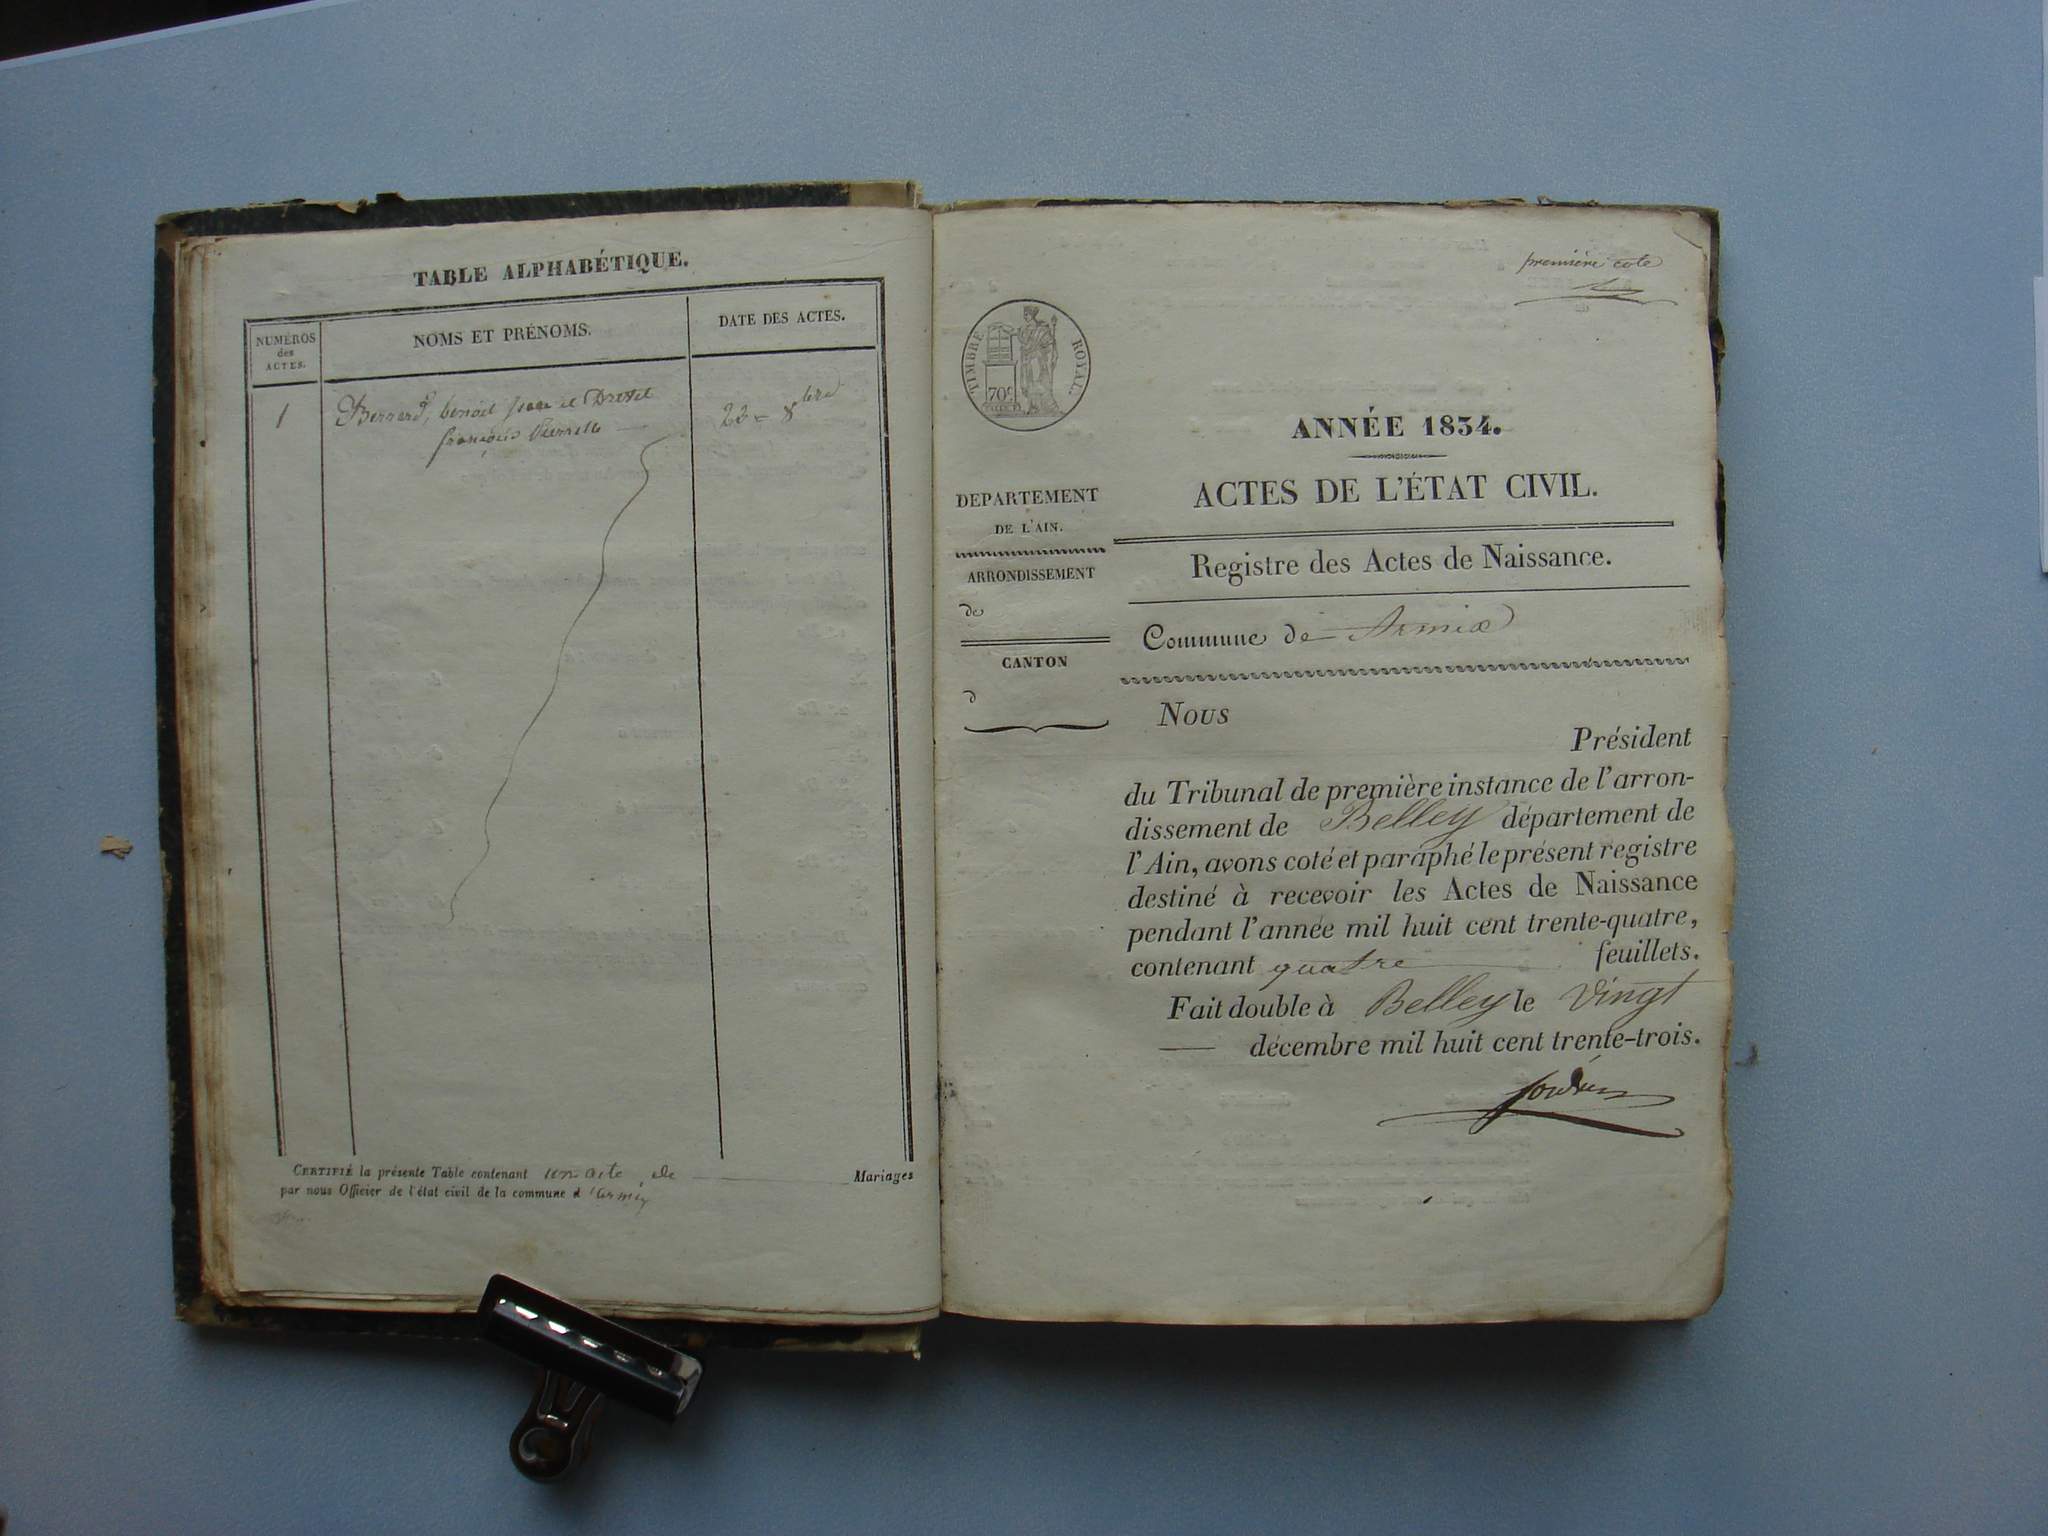 TABLE ALPHABÉTIQUE.
NUMÉROS
des
ACTES.
NOMS ET PRÉNOMS.
DATE DES ACTES.
1
Bernard, benoit
françois Pierrette
22 - 8bre
CERTIFIÉ la présente Table contenant un acte de Mariages
par nous Officier de l'état civil de la commune d'armix
première cote
TIMBRE ROYAL.
70c
ANNÉE 1834.
ACTES DE L'ÉTAT CIVIL.
DEPARTEMENT
DE L'AIN.
ARRONDISSEMENT
de
CANTON
d
Registre des Actes de Naissance.
Commune de Armix
Nous
Président
du Tribunal de première instance de l'arron-
dissement de Belley département de
l'Ain, avons coté et paraphé le présent registre
destiné à recevoir les Actes de Naissance
pendant l'année mil huit cent trente-quatre,
contenant quatre feuillets.
Fait double à Belley le vingt
décembre mil huit cent trente-trois.